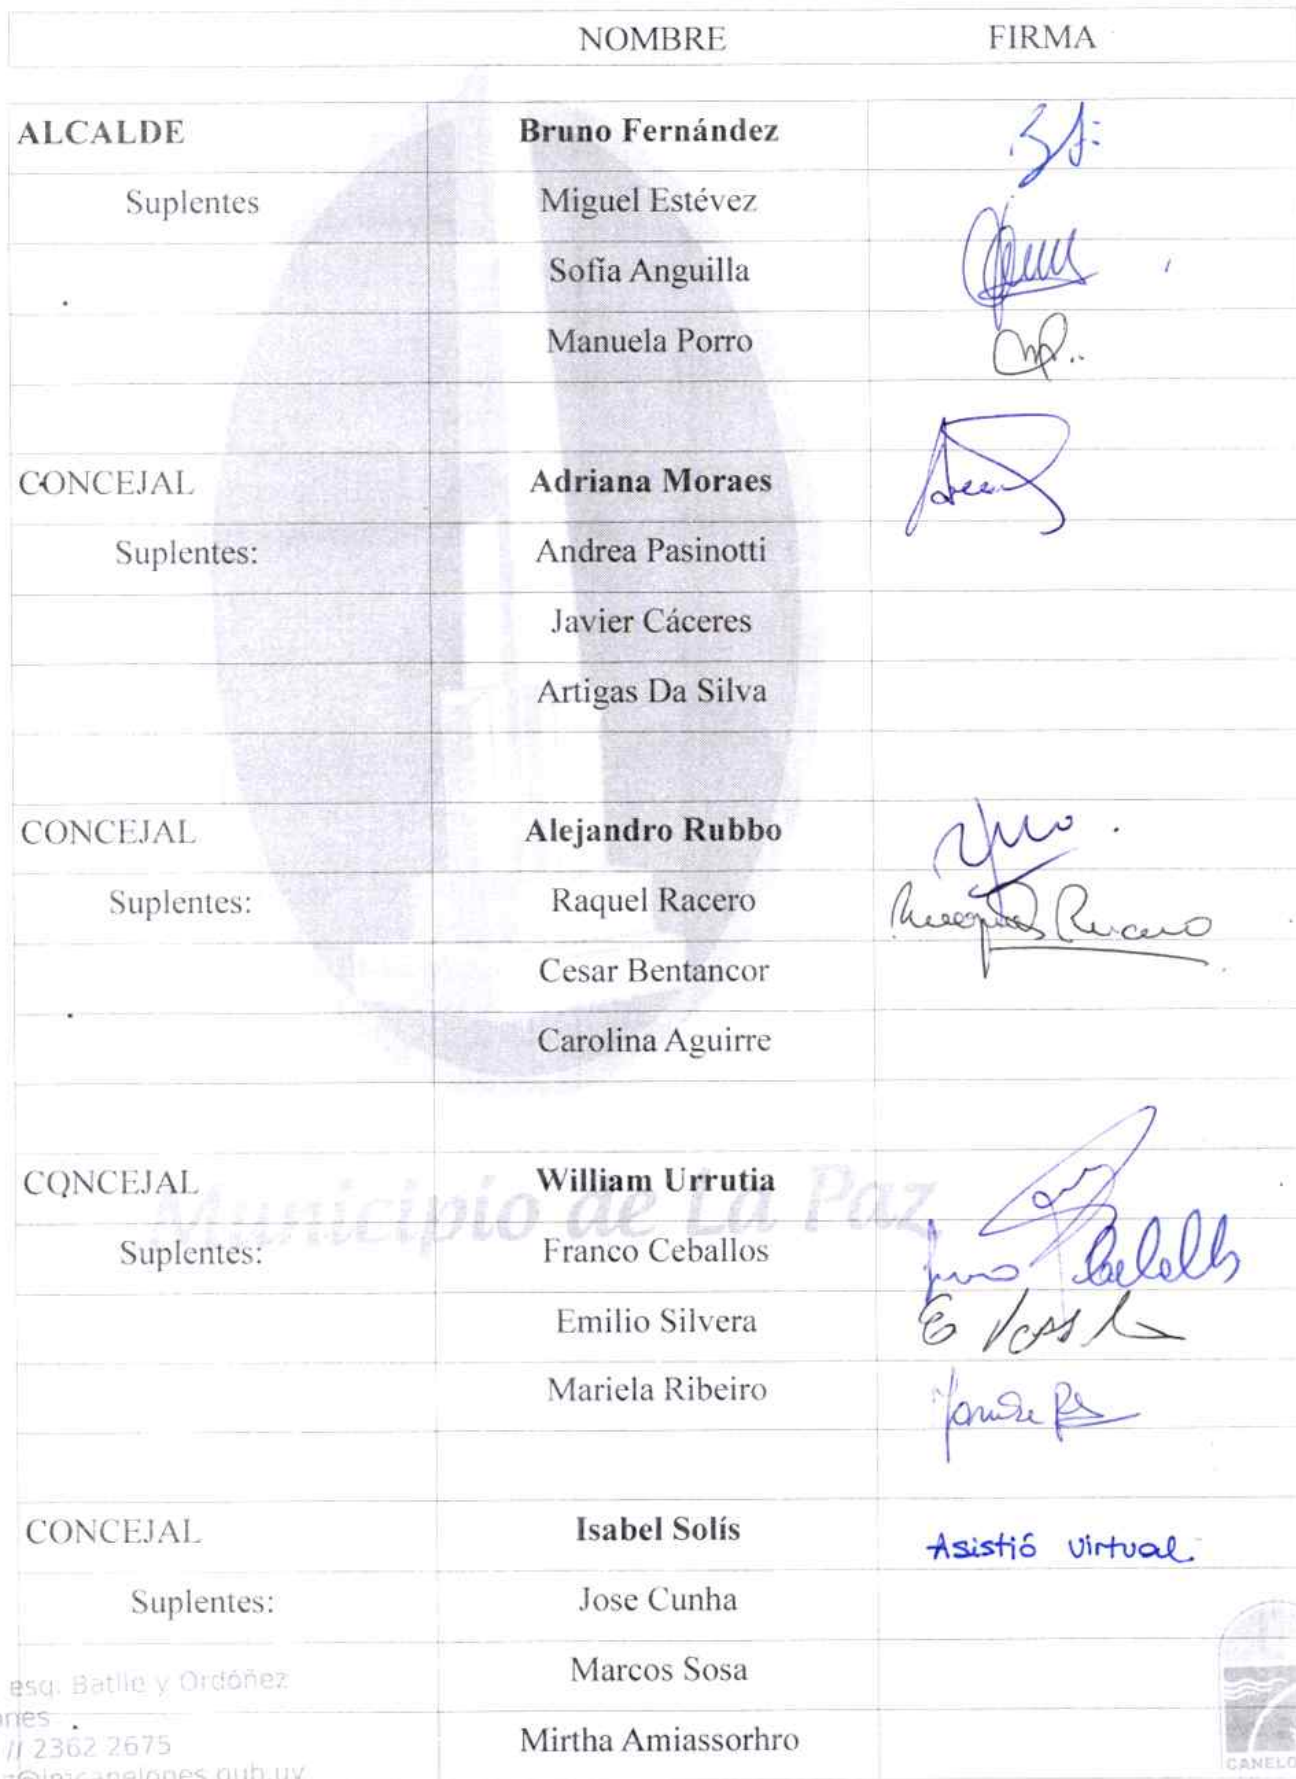 NOMBRE FIRMA
ALCALDE Bruno Fernández
Suplentes Miguel Estévez
Sofía Anguilla
Manuela Porro
CONCEJAL Adriana Moraes
Suplentes: Andrea Pasinotti
Javier Cáceres
Artigas Da Silva
CONCEJAL Alejandro Rubbo
Suplentes: Raquel Racero
Cesar Bentancor
Carolina Aguirre
CONCEJAL William Urrutia
Municipio de La Paz
Suplentes: Franco Ceballos
Emilio Silvera
Mariela Ribeiro
CONCEJAL Isabel Solís Asistió virtual.
Suplentes: Jose Cunha
Marcos Sosa
esq. Batlle y Ordóñez
Mirtha Amiassorhro
// 2362 2675